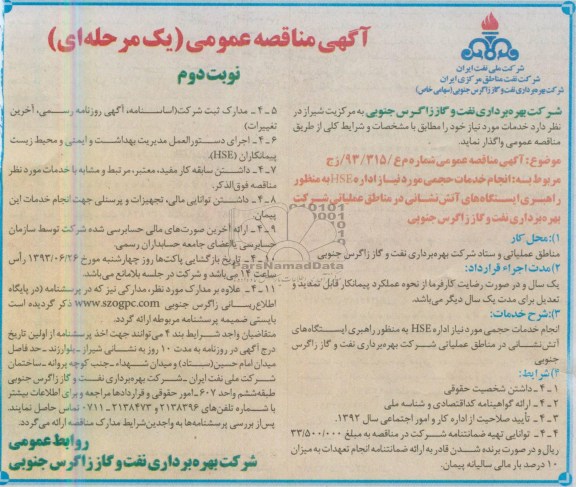 آگهی مناقصه عمومی (یک مرحله‌ای)
نوبت دوم
شرکت ملی نفت ایران
شرکت نفت مناطق مرکزی ایران
شرکت بهره‌برداری نفت و گاز زاگرس جنوبی (سهامی خاص)
شرکت بهره‌برداری نفت و گاز زاگرس جنوبی به مرکزیت شیراز در
نظر دارد خدمات مورد نیاز خود را مطابق با مشخصات و شرایط کلی از طریق
مناقصه عمومی واگذار نماید.
موضوع: آگهی مناقصه عمومی شماره م ع/۹۳/۳۱۵/ زج
مربوط به: انجام خدمات حجمی مورد نیاز اداره HSE به منظور
راهبری ایستگاه‌های آتش‌نشانی در مناطق عملیاتی شرکت
بهره‌برداری نفت و گاز زاگرس جنوبی
۱): محل کار
مناطق عملیاتی و ستاد شرکت بهره‌برداری نفت و گاز زاگرس جنوبی
۲) مدت اجراء قرارداد:
یک سال و در صورت رضایت کارفرما از نحوه عملکرد پیمانکار قابل تمدید و
تعدیل برای مدت یک سال دیگر می‌باشد.
۳): شرح خدمات:
انجام خدمات حجمی مورد نیاز اداره HSE به منظور راهبری ایستگاه‌های
آتش‌نشانی در مناطق عملیاتی شرکت بهره‌برداری نفت و گاز زاگرس
جنوبی
۴) شرایط:
۴-۱- داشتن شخصیت حقوقی
۴-۲- ارائه گواهینامه کداقتصادی و شناسه ملی
۴-۳- تأیید صلاحیت از اداره کار و امور اجتماعی سال ۱۳۹۲.
۴-۴- توانایی تهیه ضمانتنامه شرکت در مناقصه به مبلغ ۳۳/۵۰۰/۰۰۰
ریال و در صورت برنده شدن قادر به ارائه ضمانتنامه انجام تعهدات به میزان
۱۰ درصد بار مالی سالیانه پیمان.
۴-۵- مدارک ثبت شرکت (اساسنامه، آگهی روزنامه رسمی، آخرین
تغییرات)
۴-۶- اجرای دستورالعمل مدیریت بهداشت و ایمنی و محیط زیست
پیمانکاران (HSE).
۴-۷- داشتن سابقه کار مفید، معتبر، مرتبط و مشابه با خدمات مورد نظر
مناقصه فوق‌الذکر.
۴-۸- داشتن توانایی مالی، تجهیزات و پرسنلی جهت انجام خدمات این
پیمان.
۴-۹- ارائه آخرین صورت‌های مالی حسابرسی شده توسط سازمان
حسابرسی یا اعضای جامعه حسابداران رسمی.
۴-۱۰- تاریخ بازگشایی پاکت‌ها روز چهارشنبه مورخ ۱۳۹۳/۰۶/۲۶ رأس
ساعت ۱۴ می‌باشد و شرکت در جلسه بلامانع می‌باشد.
۴-۱۱- علاوه بر مدارک مورد نظر، مدارکی نیز که در پرسشنامه (در پایگاه
اطلاع‌رسانی زاگرس جنوبی www.szogpc.com ذکر گردیده است
بایستی ضمیمه پرسشنامه مربوطه ارائه گردد.
متقاضیان واجد شرایط بند ۴ می‌توانند جهت اخذ پرسشنامه از اولین تاریخ
درج آگهی در روزنامه به مدت ۱۰ روز به نشانی شیراز - بلوارزند - حد فاصل
میدان امام حسین (ستاد) و میدان شهداء - جنب کوچه پروانه - ساختمان
شرکت ملی نفت ایران - شرکت بهره‌برداری نفت و گاز زاگرس جنوبی
طبقه ششم واحد ۶۰۷ - امور حقوقی و قراردادها مراجعه و برای اطلاعات بیشتر
با شماره تلفن‌های ۲۱۳۸۳۹۶ و ۲۱۳۸۴۷۳ - ۰۷۱۱ تماس حاصل نمایند.
پس از بررسی پرسشنامه‌ها به واجدین شرایط مدارک مناقصه ارائه می‌گردد.
روابط عمومی
شرکت بهره‌برداری نفت و گاز زاگرس جنوبی
ParsNamadData